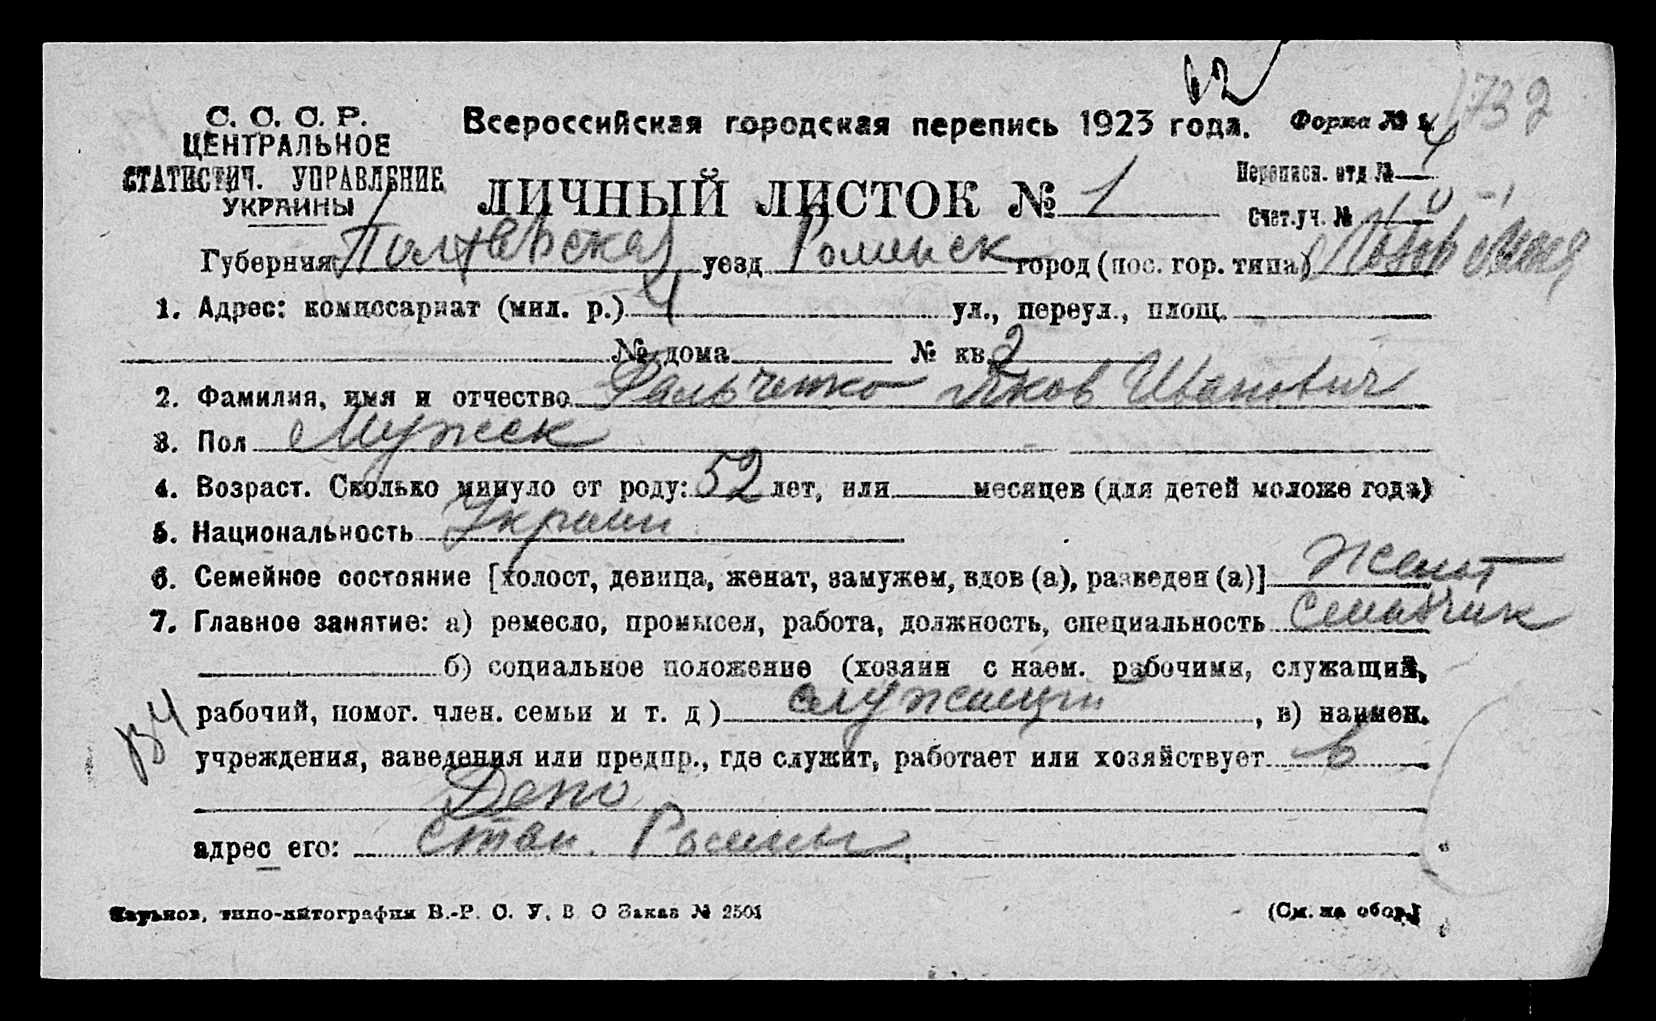 62
1732
С. С. С. Р.
ЦЕНТРАЛЬНОЕ
СТАТИСТИЧ. УПРАВЛЕНИЕ
УКРАИНЫ
Всероссийская городская перепись 1923 года.
Форма № 1
ЛИЧНЫЙ ЛИСТОК № 1
Переписн. отд № 4
Счет.уч. №
Губерния Полтавская уезд Роменск город (пос. гор. типа)
1. Адрес: комиссариат (мил. р.) 4 ул., переул., площ.
№ дома № кв. 2
2. Фамилия, имя и отчество Фальченко Яков Иванович
3. Пол Мужск
4. Возраст. Сколько минуло от роду: 52 лет, или месяцев (для детей моложе года)
5. Национальность Украин
6. Семейное состояние [холост, девица, женат, замужем, вдов (а), разведен (а)] женат
7. Главное занятие: а) ремесло, промысел, работа, должность, специальность
б) социальное положение (хозяин с наем. рабочими, служащий,
рабочий, помог. член. семьи и т. д) служащий, в) наимен.
учреждения, заведения или предпр., где служит, работает или хозяйствует в
Депо
адрес его: Стан. Ромны
Харьков, типо-литография В.-Р. С. У. В О Заказ № 2501
(См. на обор.)